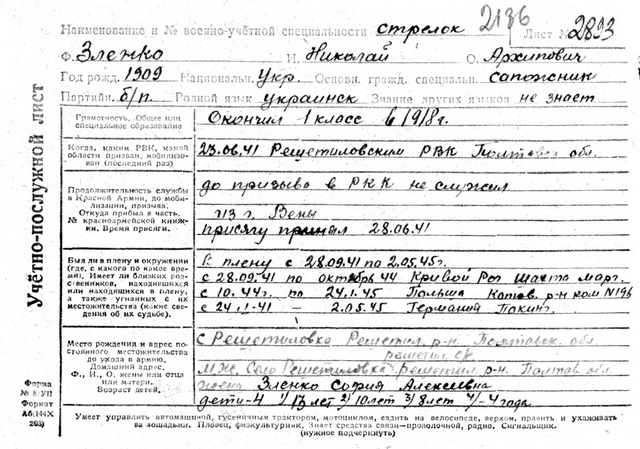 Наименование и № военно-учётной специальности стрелок 2136 Лист № 2893
Ф. Зленко И. Николай О. Архипович
Год рожд. 1909 Национальн. Укр. Основн. гражд. специальн. сапожник
Партийн. б/п. Родной язык украинск Знание других языков не знает
Учётно-послужной лист
Грамотность. Общее или специальное образование
Окончил 1 класс в 1918г.
Когда, каким РВК, какой области призван, мобилизован (последний раз)
23.06.41 Решетиловским РВК Полтавск обл.
Продолжительность службы в Красной Армии, до мобилизации, призыва. Откуда прибыл в часть. № красноармейской книжки. Время присяги.
до призыва в РКК не служил
из г. Вены
присягу принял 28.06.41
Был ли в плену и окружении (где, с какого по какое время). Имеет ли близких родственников, находившихся или находящихся в плену, а также угнанных с их местожительства (какие сведения об их судьбе).
В плену с 28.09.41 по 2.05.45г.
с 28.09.41 по октябрь 44 Кривой Рог шахта марг.
с 10.44г. по 24.1.45 Польша Катов. р-н ком N196
с 24.1.41 – 2.05.45 Германия
Место рождения и адрес постоянного местожительства до ухода в армию. Домашний адрес. Ф., И., О. жены или отца или матери. Возраст детей.
с Решетиловка Решетил. р-н. Полтавск. обл.
решетил с/с
мж. Село Решетиловка Решетил р-н. Полтав обл
жена Зленко София Алексеевна
дети-4 1/ 13 лет 2/ 10лет 3/ 8лет 4/-4 года
Форма № 8/УП Формат А6(144Х203)
Умеет управлять автомашиной, гусеничным трактором, мотоциклом, ездить на велосипеде, верхом, править и ухаживать
за лошадьми. Пловец, физкультурник. Знает средства связи—проволочной, радио. Сигнальщик.
(нужное подчеркнуть)